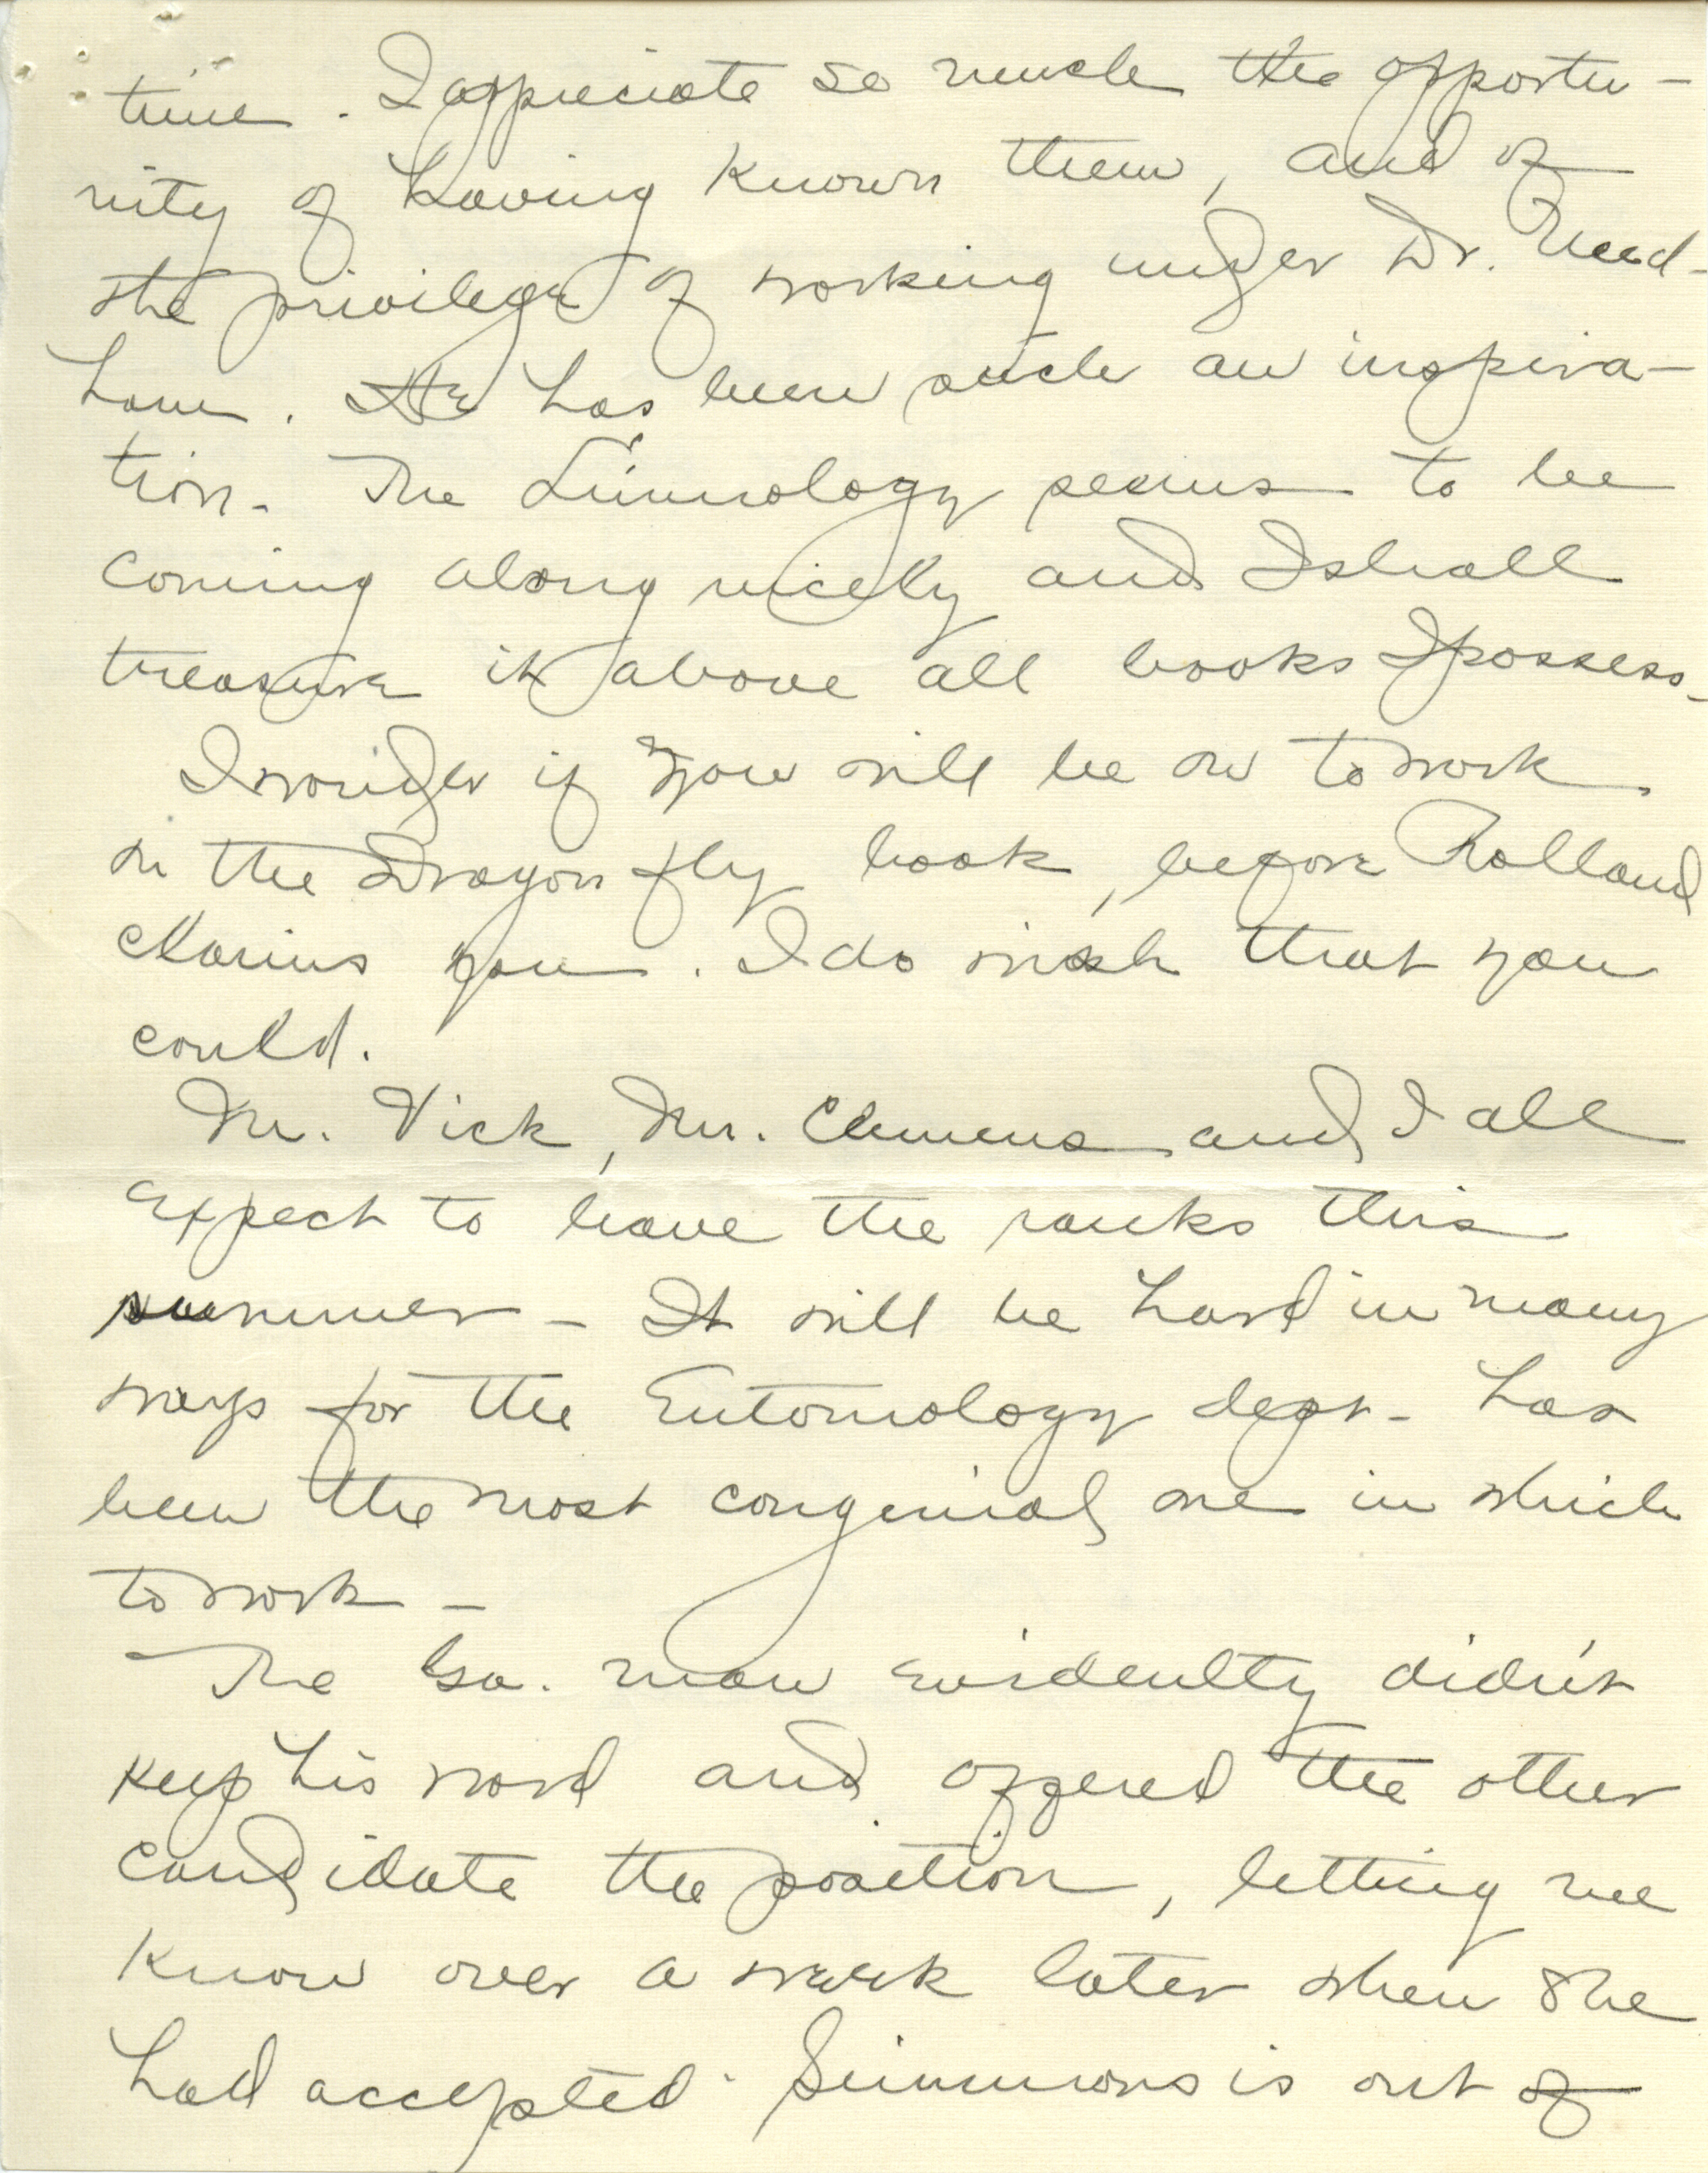 time. I appreciate so much the opportu-
nity of having known them, and of
the privilege of working under Dr. Need-
ham. He has been such an inspira-
tion. The Limnology seems to be
coming along nicely and I shall
treasure it above all books I possess.
I wonder if you will be on to work
on the Dragon fly book, before Rolland
claims you. I do wish that you
could.
Mr. Vick, Mr. Clemens and I all
expect to leave the ranks this
summer - It will be hard in many
ways for the Entomology dept. has
been the most congenial one in which
to work -
The Ga. man evidently didn't
keep his word and offered the other
candidate the position, letting me
know over a week later when she
had accepted. Simmons is out of